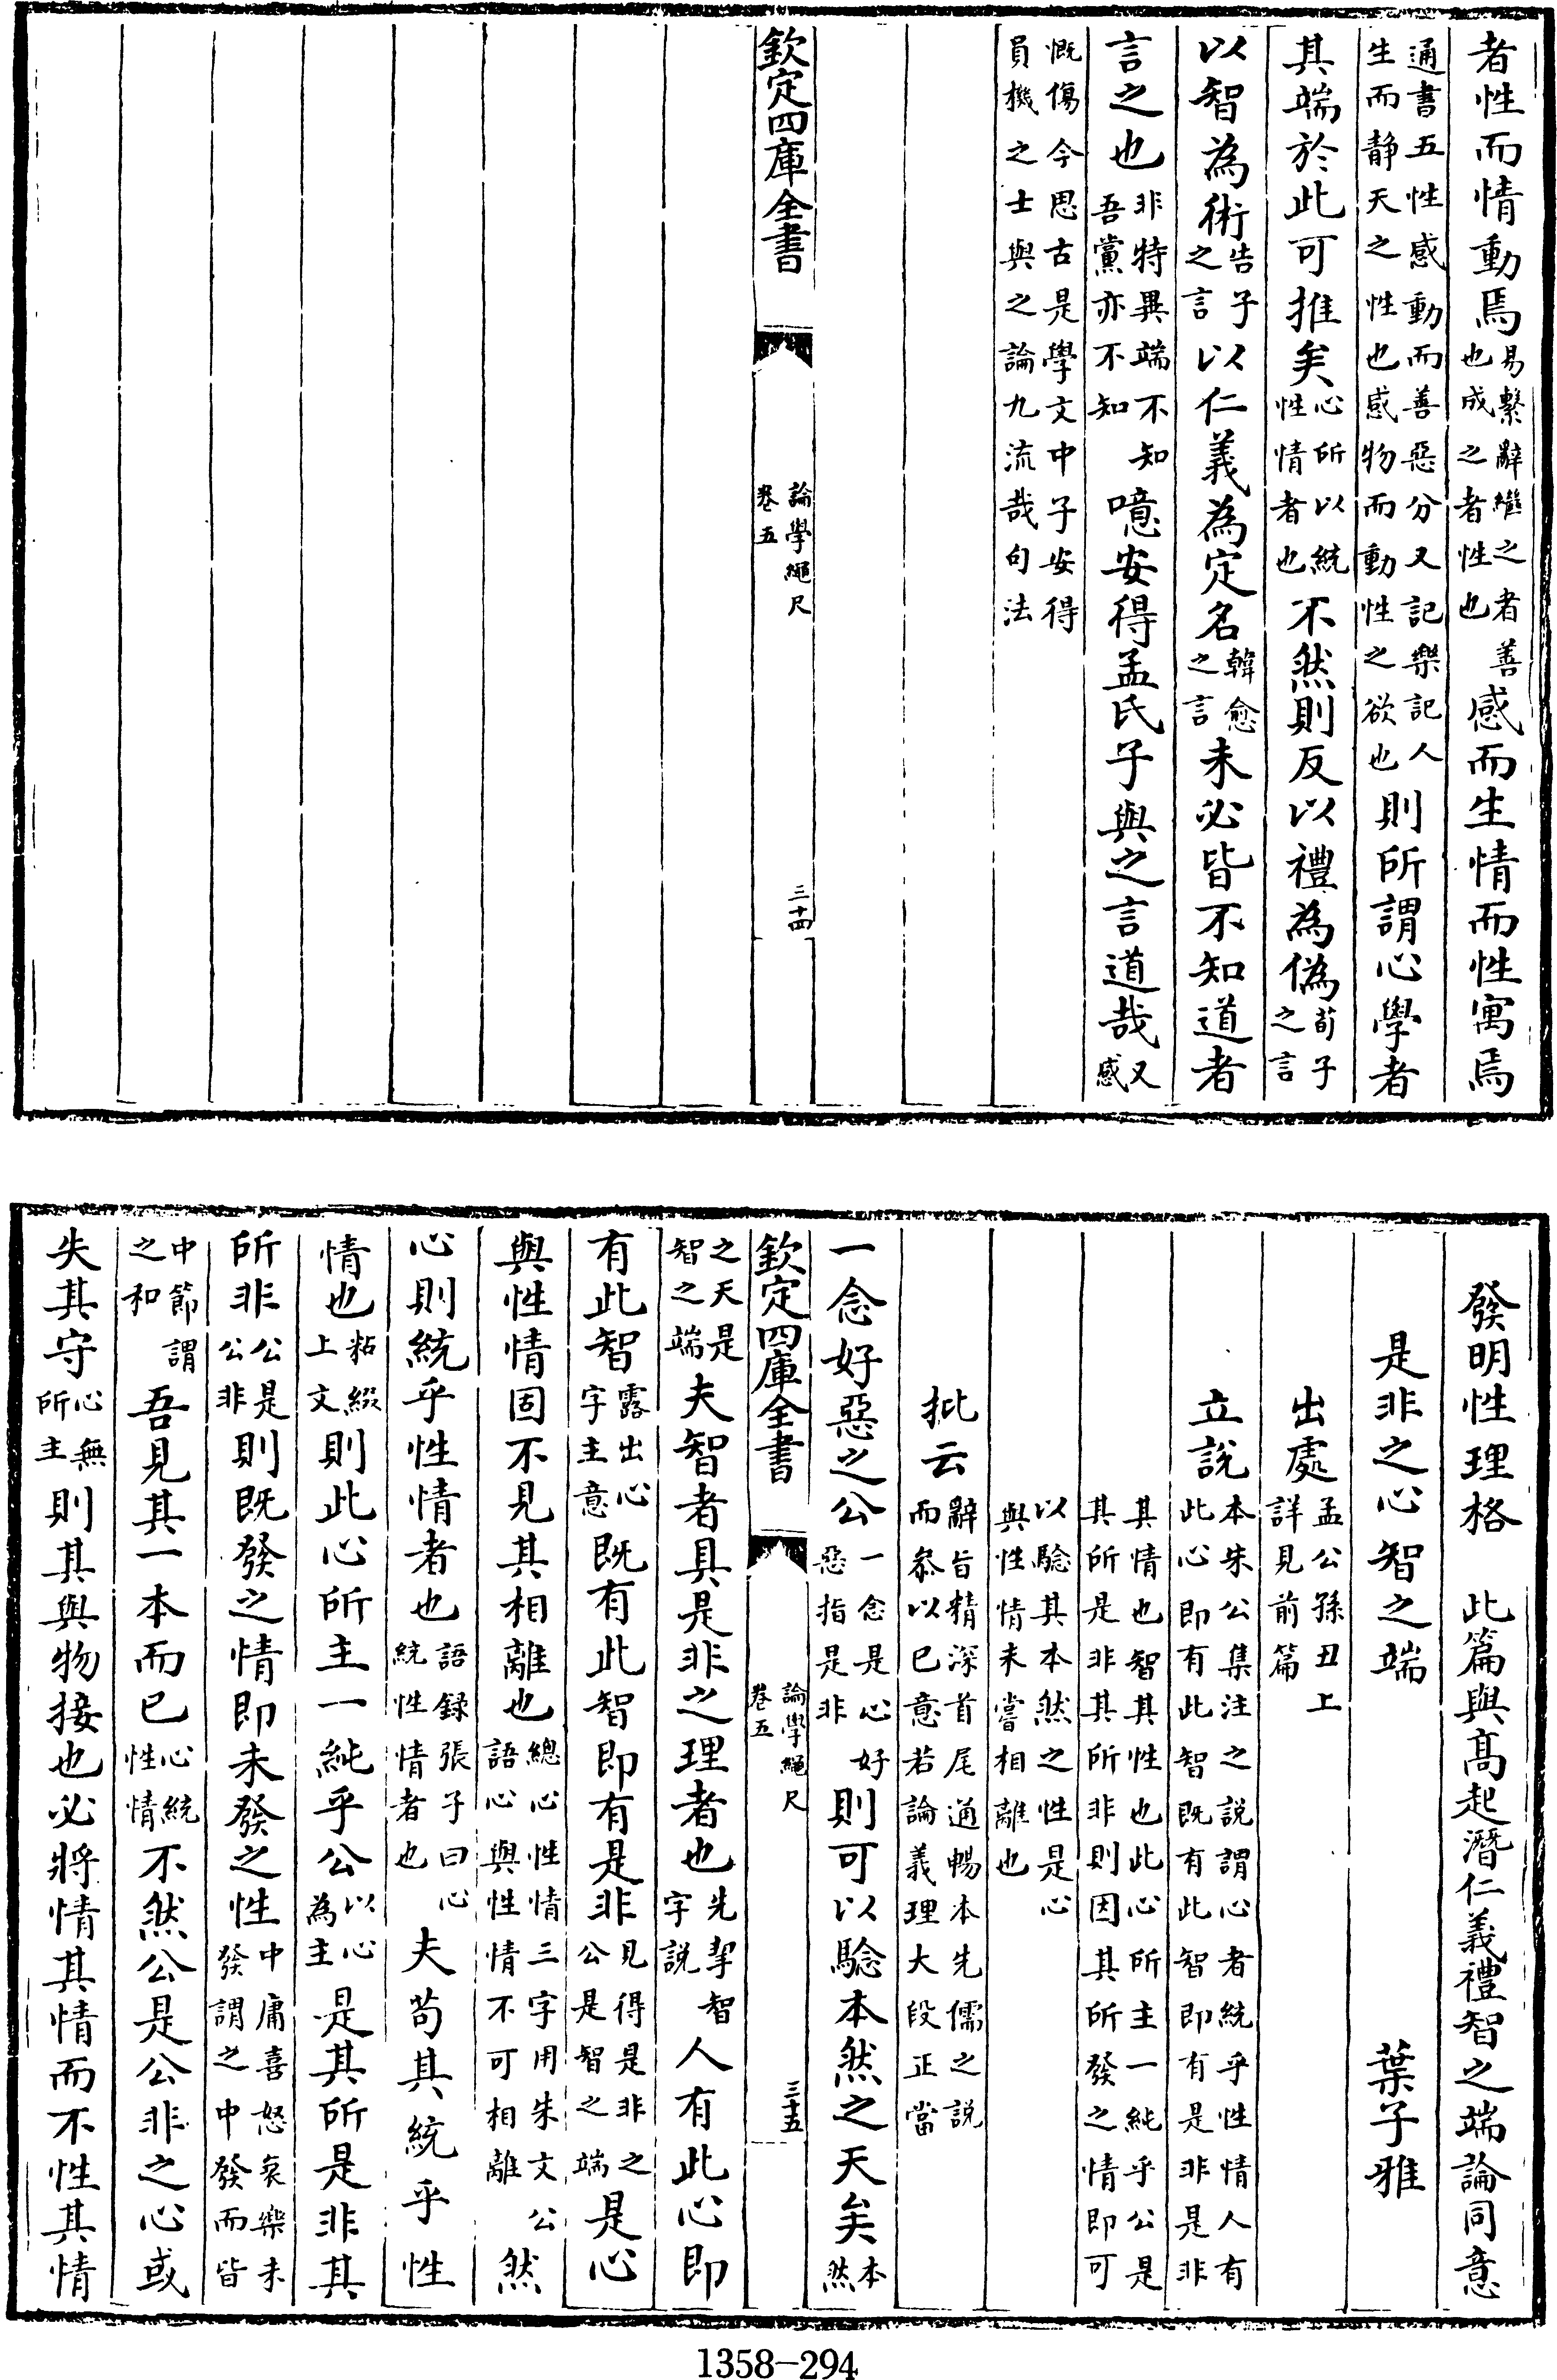 者性而情動焉易繫辭繼之者善也成之者性也感而生情而性寓焉
通書五性感動而善惡分又記樂記人生而靜天之性也感物而動性之欲也則所謂心學者
其端於此可推矣心所以統性情者也不然則反以禮為偽荀子之言
以智為術告子之言以仁義為定名韓愈之言未必皆不知道者
言之也非特異端不知吾黨亦不知噫安得孟氏子與之言道哉又感
慨傷今思古是學文中子安得員機之士與之論九流哉句法
欽定四庫全書
論學繩尺
卷五
三十四
發明性理格 此篇與髙起潛仁義禮智之端論同意
是非之心智之端 葉子雅
出處孟公孫丑上詳見前篇
立說本朱公集注之說謂心者統乎性情人有此心即有此智既有此智即有是非是非
其情也智其性也此心所主一純乎公是其所是非其所非則因其所發之情即可
以驗其本然之性是心與性情未嘗相離也
批云辭旨精深首尾通暢本先儒之說而叅以已意若論義理大段正當
一念好惡之公一念是心好惡指是非則可以驗本然之天矣本然
欽定四庫全書
論學繩尺
卷五
三十五
之天是智之端是夫智者具是非之理者也先挈智字說人有此心即
有此智露出心字主意既有此智即有是非見得是非之公是智之端是心
與性情固不見其相離也總心性情三字用朱文公語心與性情不可相離然
心則統乎性情者也語録張子曰心統性情者也夫苟其統乎性
情也粘綴上文則此心所主一純乎公以心為主是其所是非其
所非公是公非則既發之情即未發之性中庸喜怒哀樂未發謂之中發而皆
中節謂之和吾見其一本而已心統性情不然公是公非之心或
失其守心無所主則其與物接也必將情其情而不性其情
1358-294